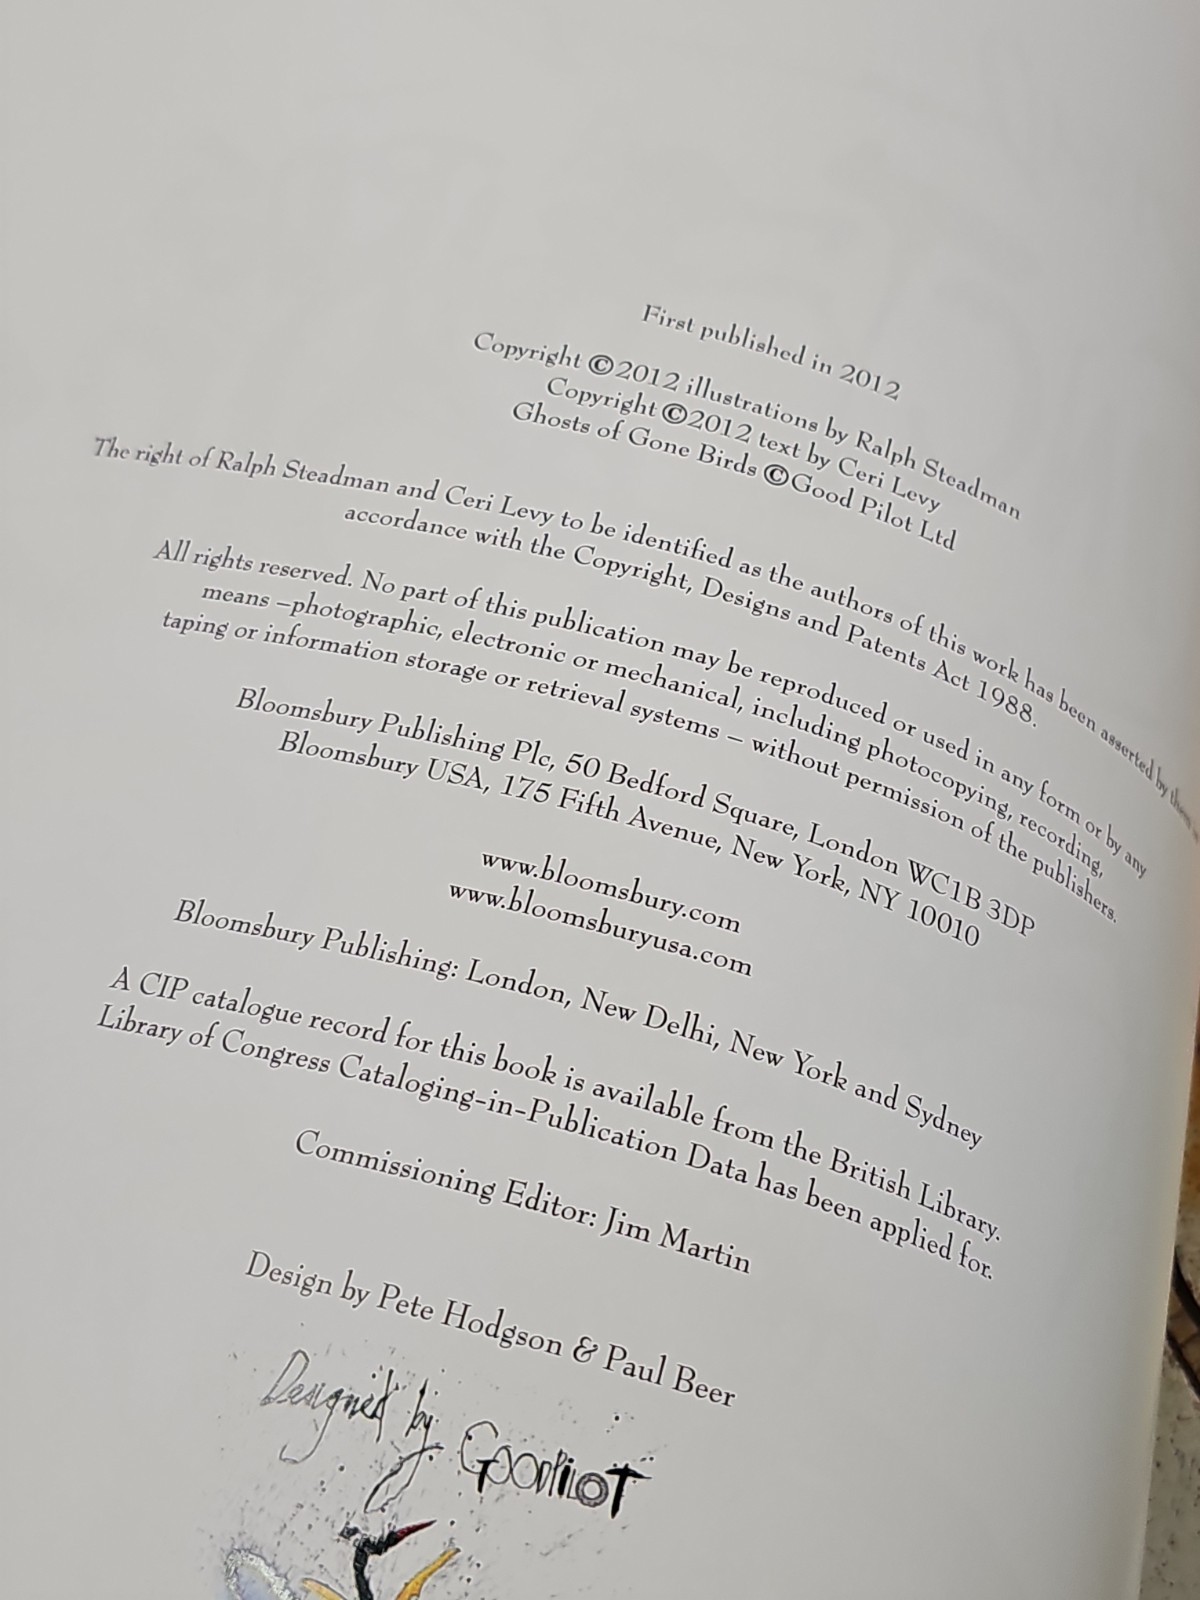 First published in 2012
Copyright ©2012 illustrations by Ralph Steadman
Copyright ©2012 text by Ceri Levy
Ghosts of Gone Birds ©Good Pilot Ltd
The right of Ralph Steadman and Ceri Levy to be identified as the authors of this work has been asserted by them
accordance with the Copyright, Designs and Patents Act 1988.
All rights reserved. No part of this publication may be reproduced or used in any form or by any
means –photographic, electronic or mechanical, including photocopying, recording,
taping or information storage or retrieval systems – without permission of the publishers.
Bloomsbury Publishing Plc, 50 Bedford Square, London WC1B 3DP
Bloomsbury USA, 175 Fifth Avenue, New York, NY 10010
www.bloomsbury.com
www.bloomsburyusa.com
Bloomsbury Publishing: London, New Delhi, New York and Sydney
A CIP catalogue record for this book is available from the British Library.
Library of Congress Cataloging-in-Publication Data has been applied for.
Commissioning Editor: Jim Martin
Design by Pete Hodgson & Paul Beer
Designed by GOODPILOT